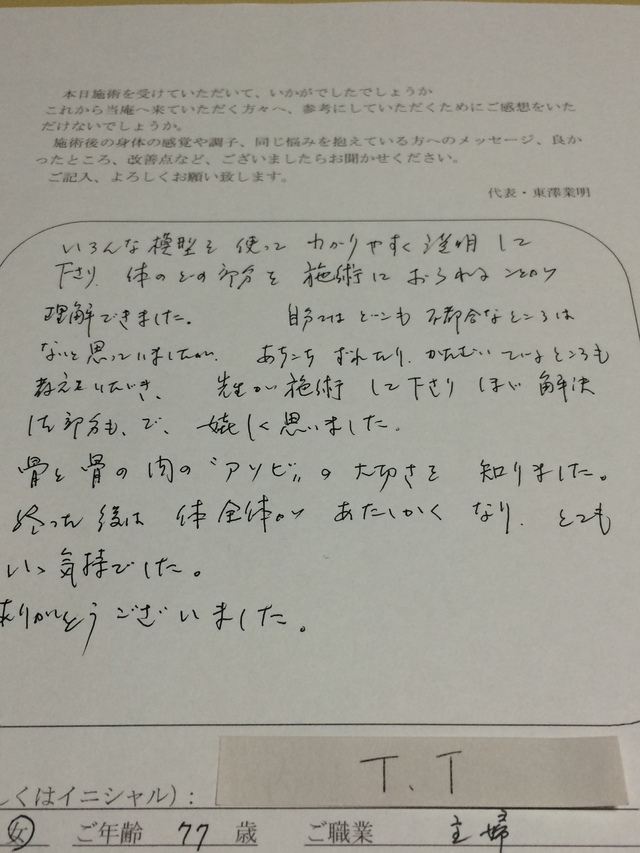 本日施術を受けていただいて、いかがでしたでしょうか
これから当庵へ来ていただく方々へ、参考にしていただくためにご感想をいた
だけないでしょうか。
施術後の身体の感覚や調子、同じ悩みを抱えている方へのメッセージ、良か
ったところ、改善点など、ございましたらお聞かせください。
ご記入、よろしくお願い致します。
代表・東澤業明
いろんな模型を使って わかりやすく説明して
下さり、体のどの部分を施術しておられることが
理解できました。 自分ではどこも不都合なところは
ないと思っていましたが、あちこちずれたり、かたむいているところも
教えていただき、先生が施術して下さりほぼ解決
した部分も、で、嬉しく思いました。
骨と骨の間の"アソビ"の大切さを知りました。
終った後は体全体があたたかくなり、とても
いい気持でした。
ありがとうございました。
しくはイニシャル）： T.T
女 ご年齢 77 歳 ご職業 主婦